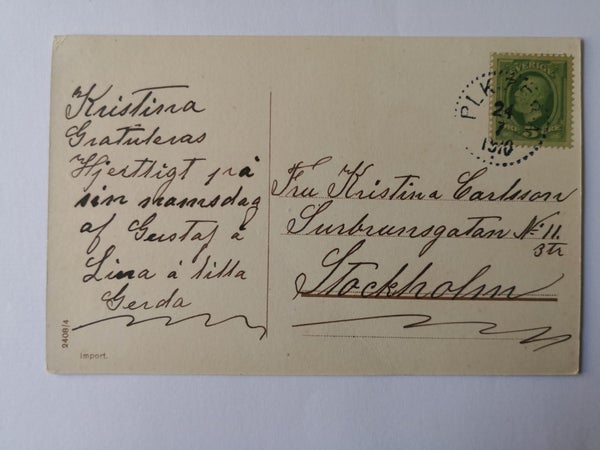 Kristina
Gratuleras
Hjertligt på
sin namnsdag
af Gustaf å
Lina å lilla
Gerda
2408/4
Import.
SVERIGE
5
PLK
24
7
1910
Fru Kristina Carlsson
Surbrunsgatan No. 11
3 tr
Stockholm